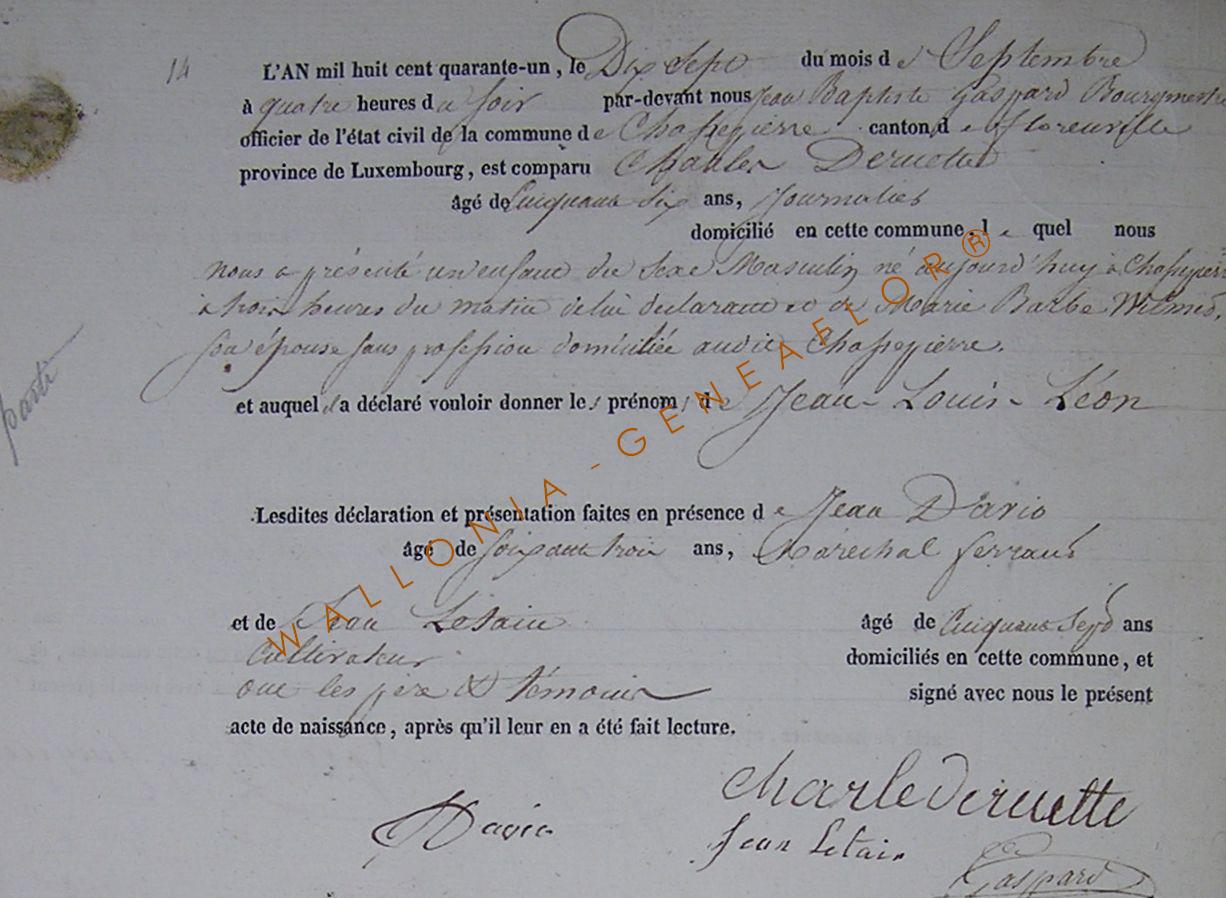 14 L'AN mil huit cent quarante-un, le Dix Sept du mois d e Septembre
à quatre heures d u Soir par-devant nous Jean Baptiste Gaspard Bourgmestre
officier de l'état civil de la commune d e Chassepierre canton d e Florenville
province de Luxembourg, est comparu Charles Deruette
âgé de Cinquante Six ans, Journalier
domicilié en cette commune, l e quel nous
nous a présenté un enfant du Sexe Masculin né aujourd'huy à Chassepierre
à trois heures du matin de lui déclarant et de Marie Barbe
Son épouse Sans profession domiciliée audit Chassepierre.
parti
et auquel il a déclaré vouloir donner le s prénom s d e Jean Louis Léon
Lesdites déclaration et présentation faites en présence d e Jean Dario
âgé de Soixante trois ans, Maréchal ferrant
et de Jean Letain âgé de Cinquante Sept ans
Cultivateur domiciliés en cette commune, et
ont les père & témoins signé avec nous le présent
acte de naissance, après qu'il leur en a été fait lecture.
charle deruette
Dario
Jean Letain
Gaspard
WALLONIA - GENEAFLOR®